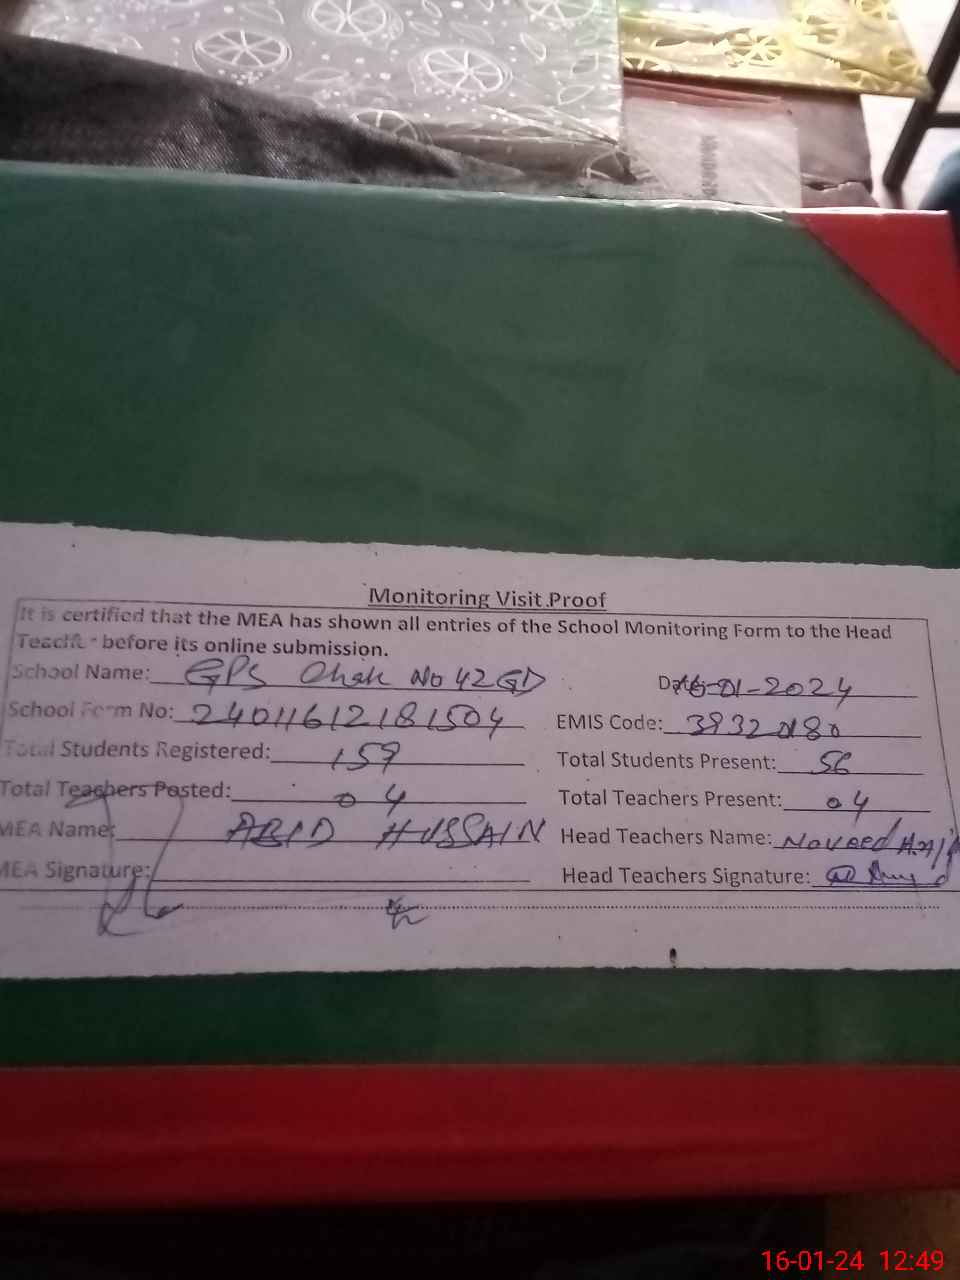 Monitoring Visit Proof
It is certified that the MEA has shown all entries of the School Monitoring Form to the Head
Teacher before its online submission.
School Name: GPS Chak No 42 GD Date: 16-01-2024
School Form No: 24011612181504 EMIS Code: 39320180
Total Students Registered: 159 Total Students Present: 56
Total Teachers Posted: 04 Total Teachers Present: 04
MEA Name: ABID HUSSAIN Head Teachers Name: Naveed
MEA Signature: Head Teachers Signature:
16-01-24 12:49